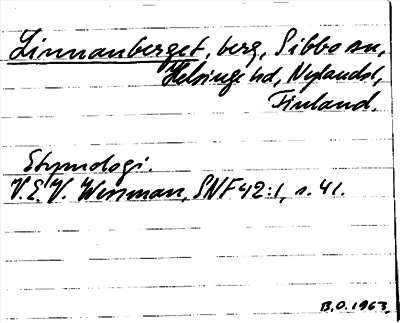 Linnanberget, berg, Sibbo sn,
Helsinge hd, Nylands l,
Finland.
Etymologi.
V.E.V. Wessman, SNF 42:1, s. 41.
B.O. 1963